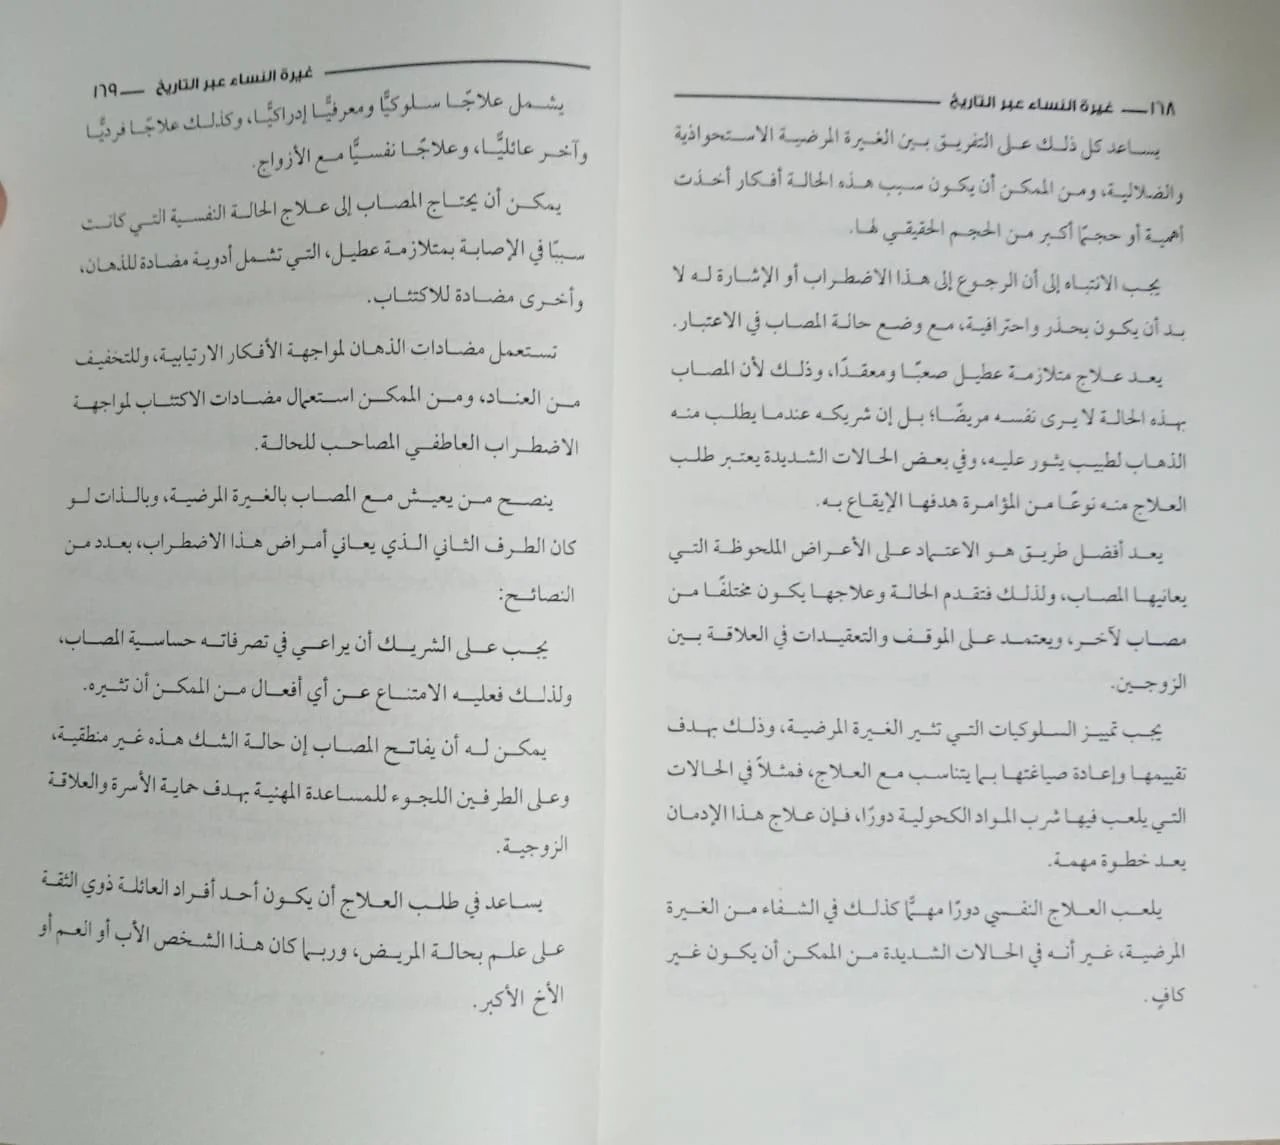 ١٦٨ — غيرة النساء عبر التاريخ
يساعد كل ذلك على التفريق بين الغيرة المرضية الاستحواذية
والضلالية، ومن الممكن أن يكون سبب هذه الحالة أفكار أخذت
أهمية أو حجمًا أكبر من الحجم الحقيقي لها.
يجب الانتباه إلى أن الرجوع إلى هذا الاضطراب أو الإشارة له لا
بد أن يكون بحذر واحترافية، مع وضع حالة المصاب في الاعتبار.
يعد علاج متلازمة عطيل صعبًا ومعقدًا، وذلك لأن المصاب
بهذه الحالة لا يرى نفسه مريضًا؛ بل إن شريكه عندما يطلب منه
الذهاب لطبيب يثور عليه، وفي بعض الحالات الشديدة يعتبر طلب
العلاج منه نوعًا من المؤامرة هدفها الإيقاع به.
يعد أفضل طريق هو الاعتماد على الأعراض الملحوظة التي
يعانيها المصاب، ولذلك فتقدم الحالة وعلاجها يكون مختلفًا من
مصاب لآخر، ويعتمد على الموقف والتعقيدات في العلاقة بين
الزوجين.
يجب تمييز السلوكيات التي تثير الغيرة المرضية، وذلك بهدف
تقييمها وإعادة صياغتها بما يتناسب مع العلاج، فمثلاً في الحالات
التي يلعب فيها شرب المواد الكحولية دورًا، فإن علاج هذا الإدمان
يعد خطوة مهمة.
يلعب العلاج النفسي دورًا مهمًّا كذلك في الشفاء من الغيرة
المرضية، غير أنه في الحالات الشديدة من الممكن أن يكون غير
كافٍ.
غيرة النساء عبر التاريخ — ١٦٩
يشمل علاجًا سلوكيًّا ومعرفيًّا إدراكيًّا، وكذلك علاجًا فرديًّا
وآخر عائليًّا، وعلاجًا نفسيًّا مع الأزواج.
يمكن أن يحتاج المصاب إلى علاج الحالة النفسية التي كانت
سببًا في الإصابة بمتلازمة عطيل، التي تشمل أدوية مضادة للذهان،
وأخرى مضادة للاكتئاب.
تستعمل مضادات الذهان لمواجهة الأفكار الارتيابية، وللتخفيف
من العناد، ومن الممكن استعمال مضادات الاكتئاب لمواجهة
الاضطراب العاطفي المصاحب للحالة.
ينصح من يعيش مع المصاب بالغيرة المرضية، وبالذات لو
كان الطرف الثاني الذي يعاني أمراض هذا الاضطراب، بعدد من
النصائح:
يجب على الشريك أن يراعي في تصرفاته حساسية المصاب،
ولذلك فعليه الامتناع عن أي أفعال من الممكن أن تثيره.
يمكن له أن يفاتح المصاب إن حالة الشك هذه غير منطقية،
وعلى الطرفين اللجوء للمساعدة المهنية بهدف حماية الأسرة والعلاقة
الزوجية.
يساعد في طلب العلاج أن يكون أحد أفراد العائلة ذوي الثقة
على علم بحالة المريض، وربما كان هذا الشخص الأب أو العم أو
الأخ الأكبر.